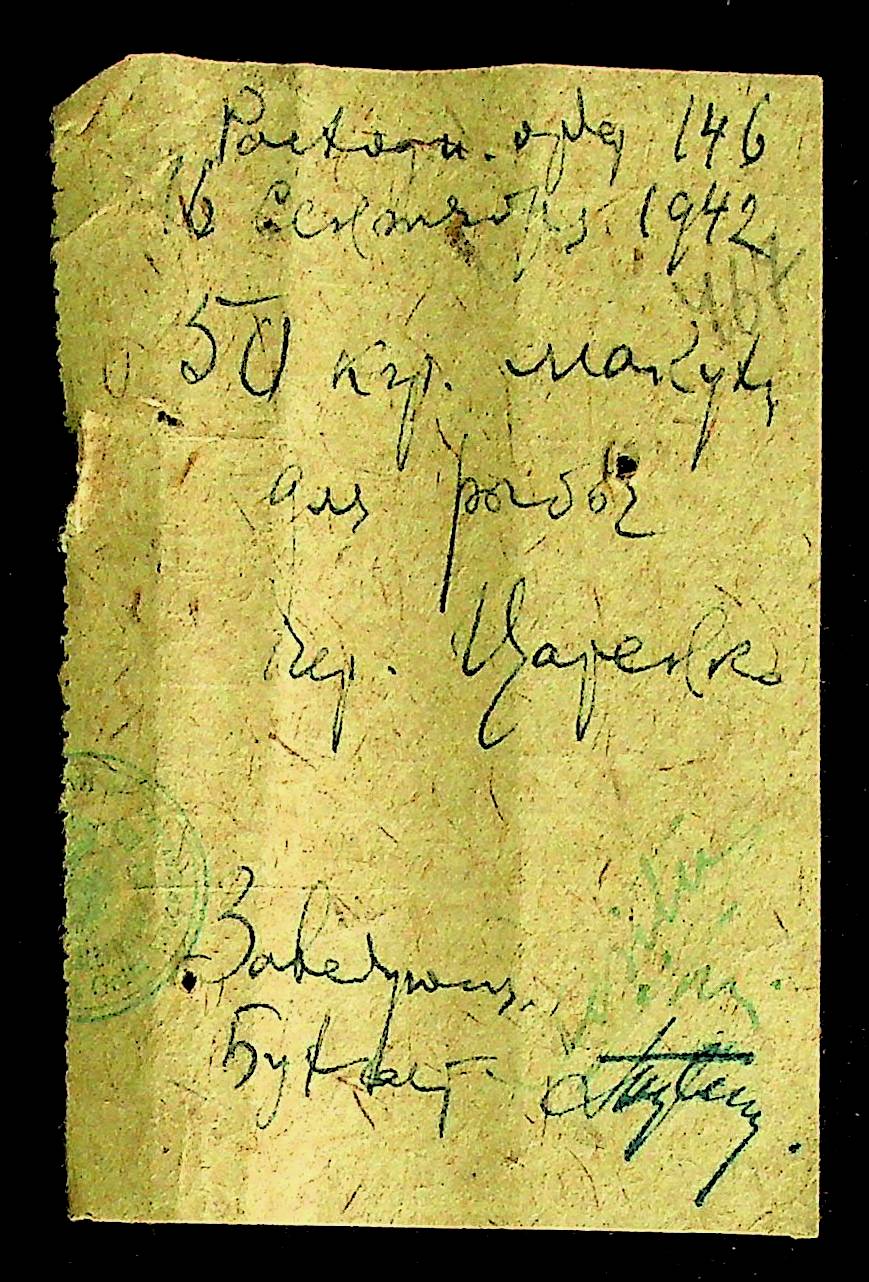 Расходн. орд 146
16 Сентября 1942
50 кгр. макухи
для рыбы
чер. Царенко
Заведующ.
Бухгалт